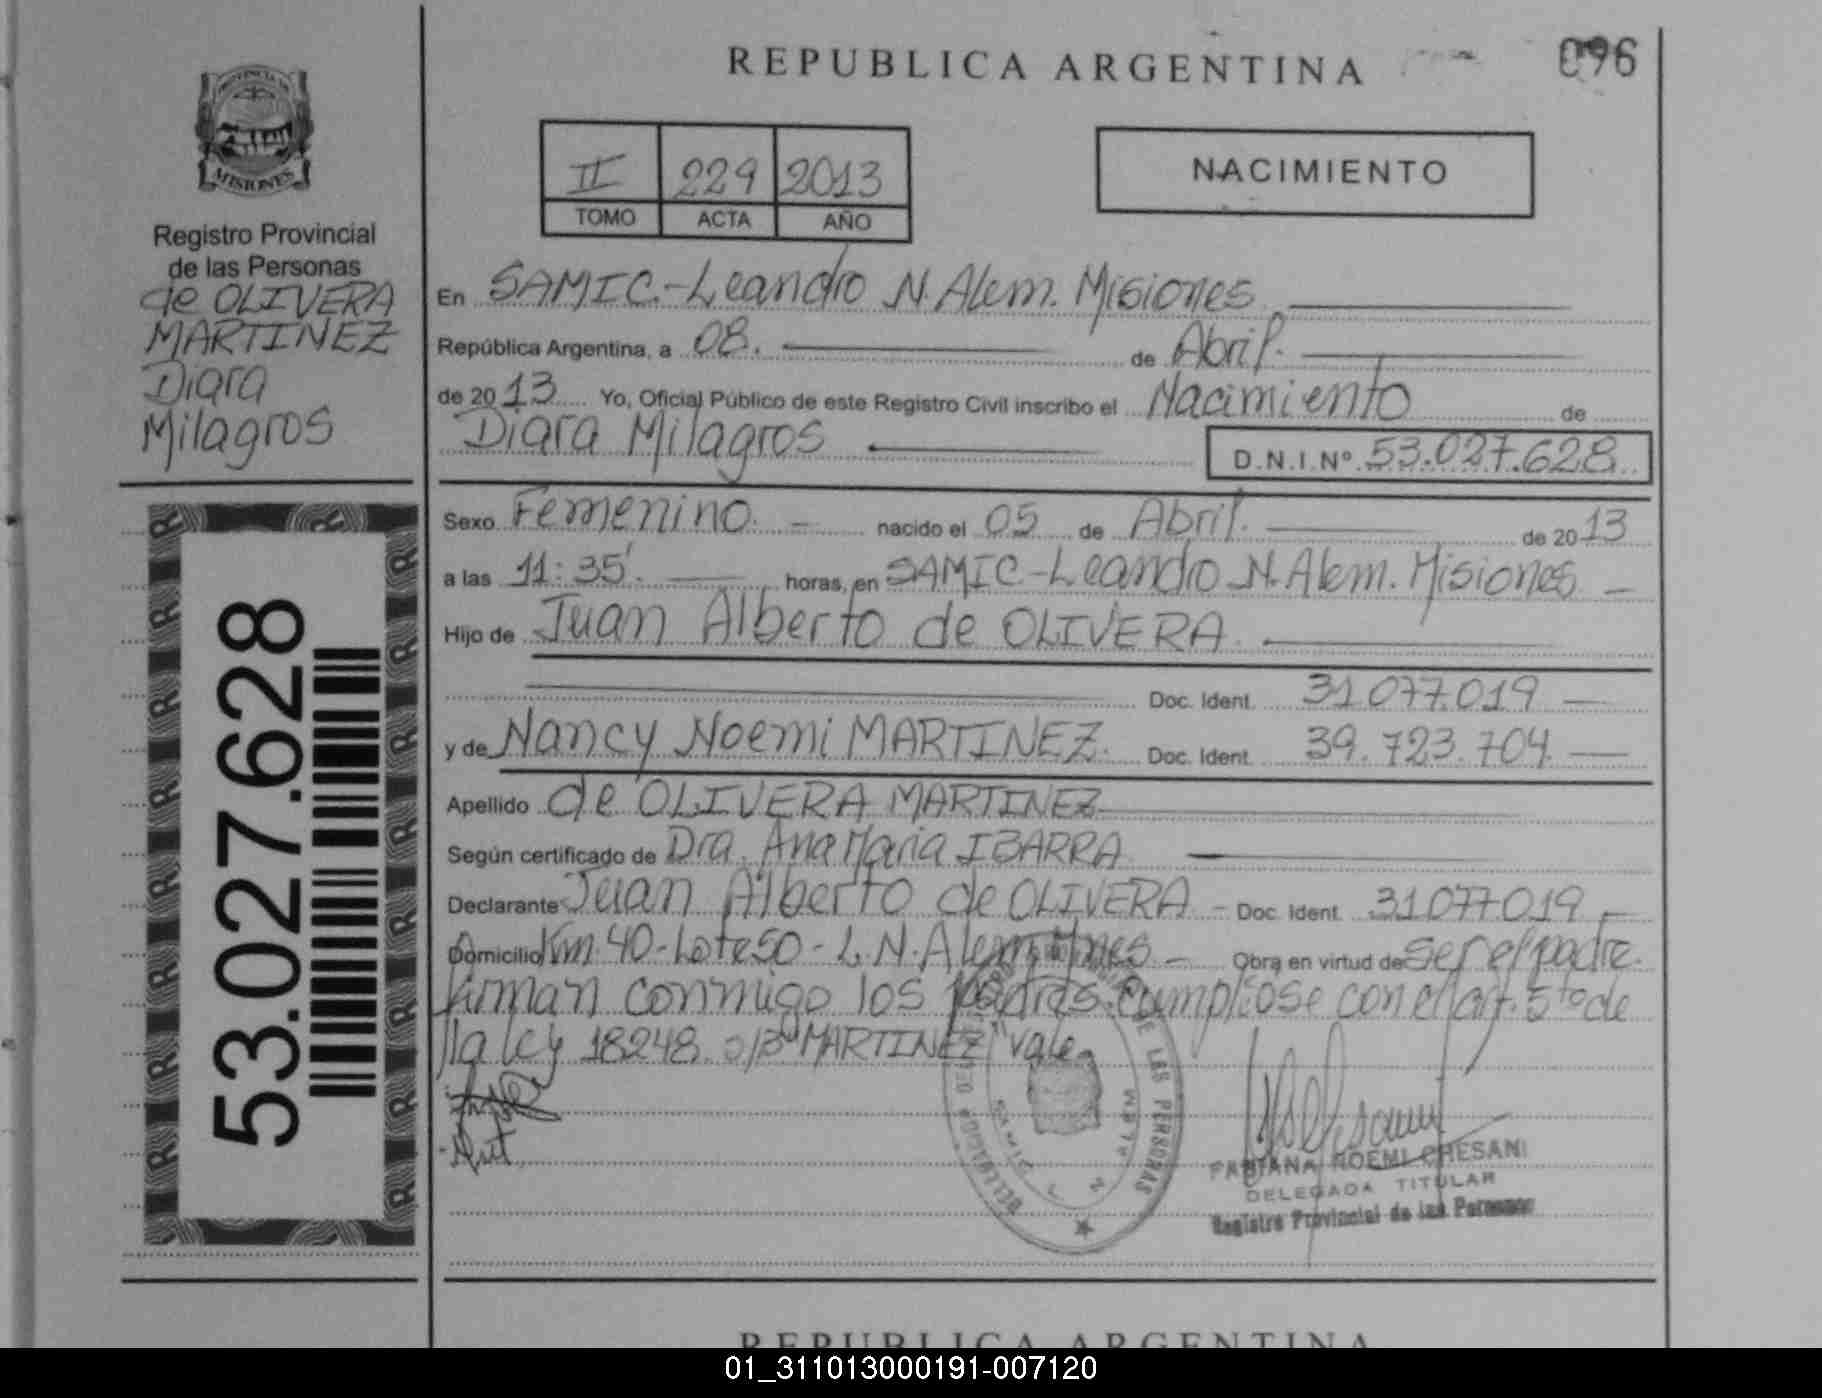 REPUBLICA ARGENTINA
096
PROVINCIA DE
MISIONES
Registro Provincial
de las Personas
de OLIVERA
MARTINEZ
Diara
Milagros
53.027.628
II 229 2013
TOMO ACTA AÑO
NACIMIENTO
En SAMIC.-Leandro N. Alem. Misiones
República Argentina, a 08. de Abril.
de 2013 Yo, Oficial Público de este Registro Civil inscribo el Nacimiento de
Diara Milagros D.N.I.Nº 53.027.628
Sexo Femenino. nacido el 05 de Abril. de 2013
a las 11:35'. horas, en SAMIC-Leandro N. Alem. Misiones
Hijo de Juan Alberto de OLIVERA
Doc. Ident. 31.077.019
y de Nancy Noemi MARTINEZ. Doc. Ident. 39.723.704
Apellido de OLIVERA MARTINEZ
Según certificado de Dra. Ana Maria IBARRA
Declarante Juan Alberto de OLIVERA - Doc. Ident. 31.077.019
Domicilio Km. 40-Lote 50 - L.N. Alem Mnes - Obra en virtud de ser el padre.
firman conmigo los padres. Cumpliose con el art. 5to de
la ley 18248. s/B "MARTINEZ" Vale
DE LAS PERSONAS
DELEGACION
SAMIC L N ALEM
FABIANA NOEMI CHESANI
DELEGADA TITULAR
Registro Provincial de las Personas
REPUBLICA ARGENTINA
01_311013000191-007120